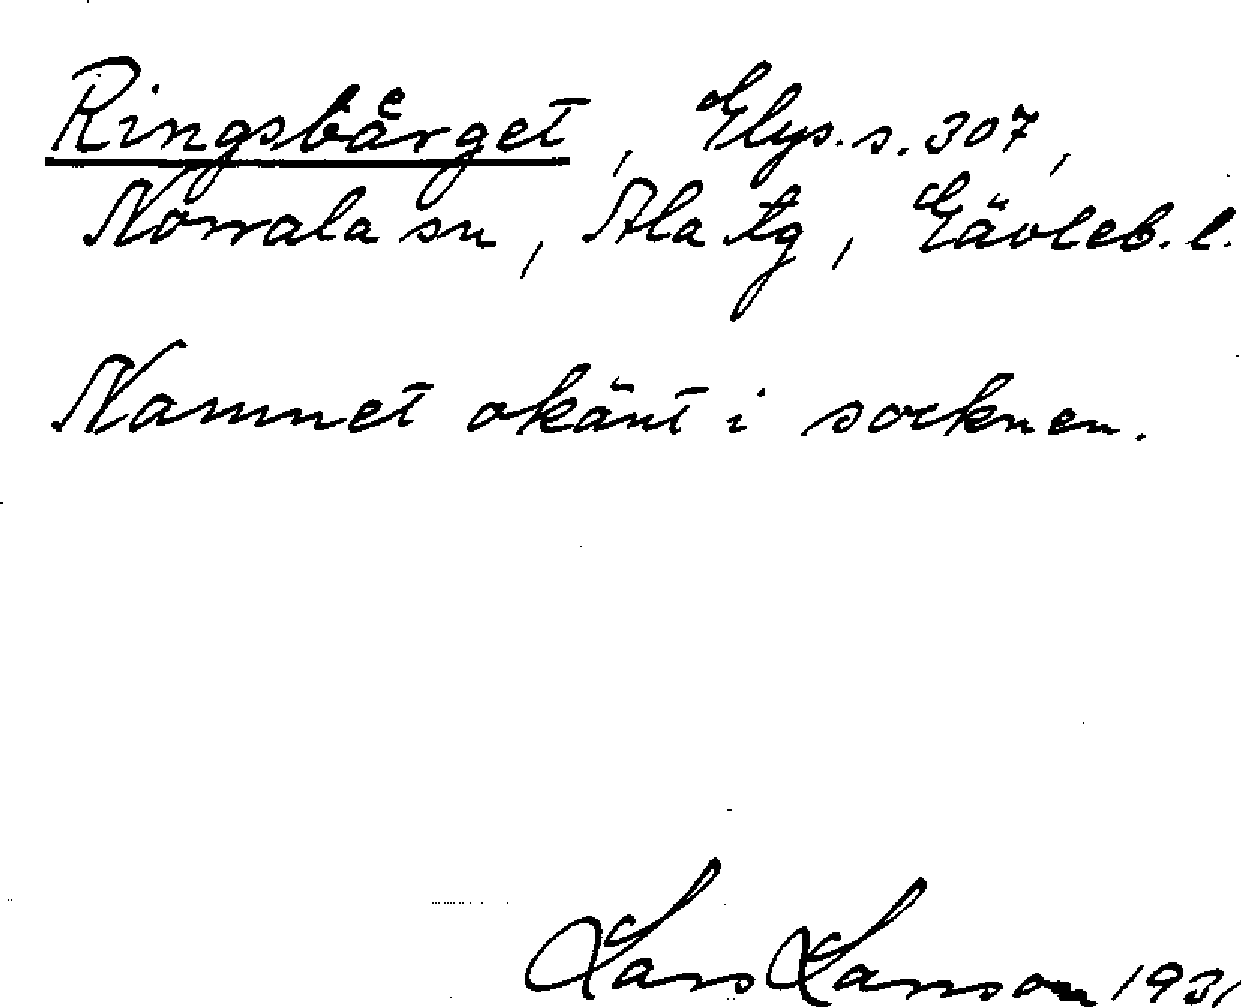 Ringsberget, Glys. s. 307,
Norrala sn, Ala tg, Gävleb. l.
Namnet okänt i socknen.
Lars Larsson 1931